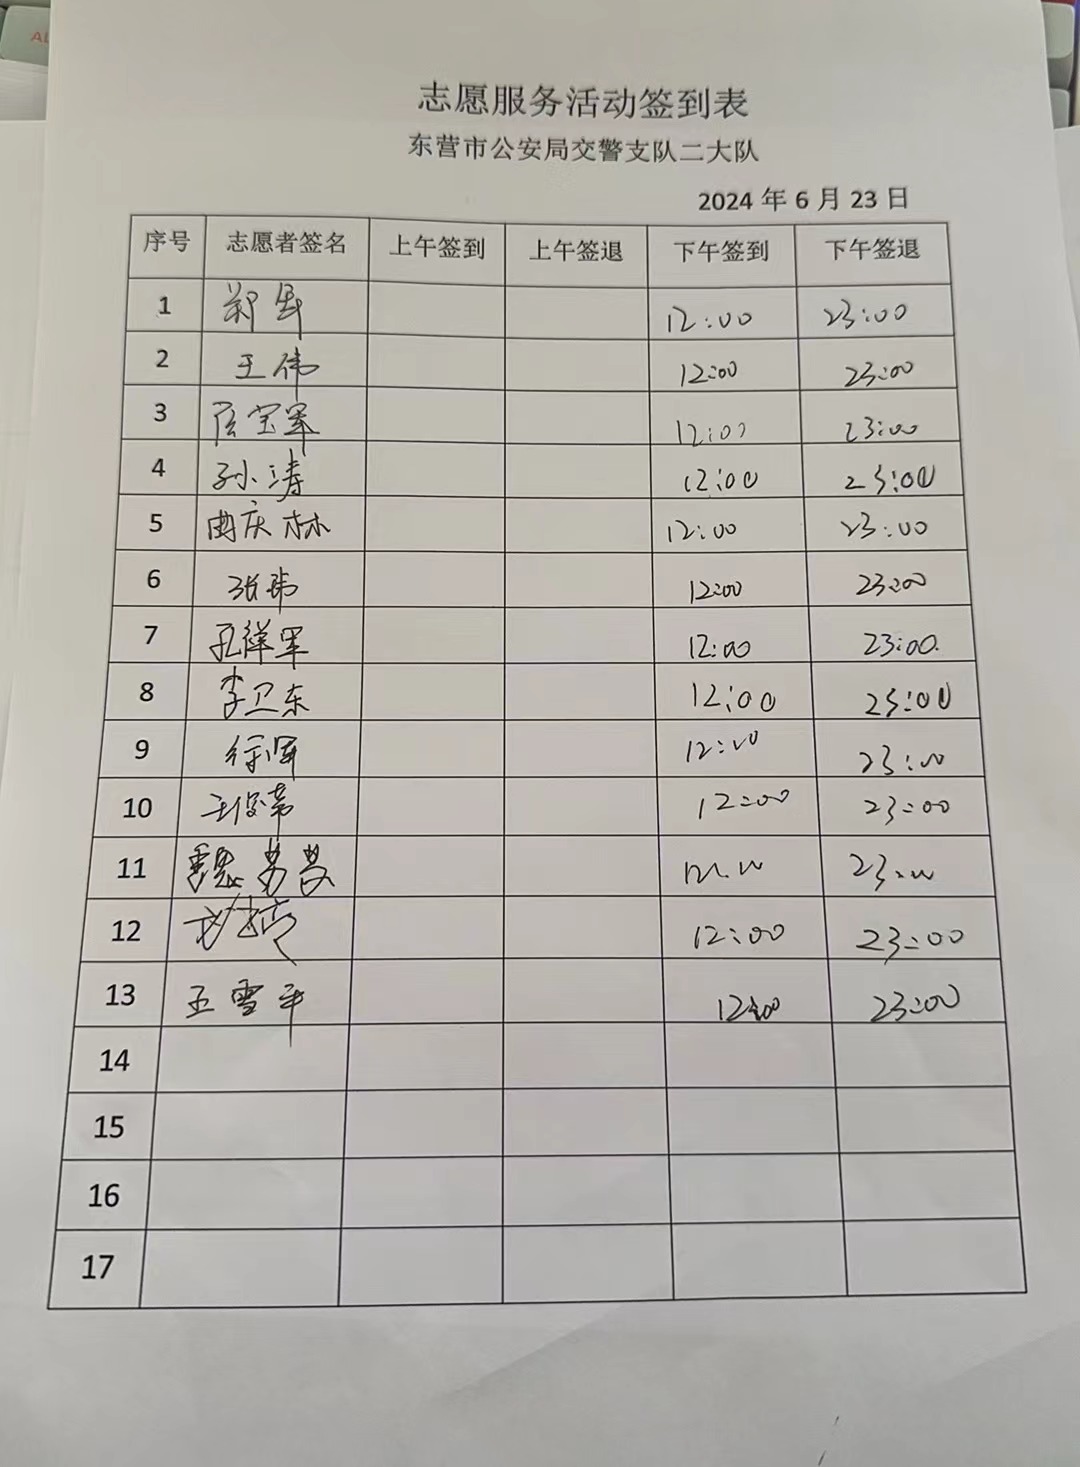 志愿服务活动签到表
东营市公安局交警支队二大队
2024 年 6 月 23 日
序号 志愿者签名 上午签到 上午签退 下午签到 下午签退
1 12:00 23:00
2 王伟 12:00 23:00
3 宝军 12:00 23:00
4 孙涛 12:00 23:00
5 曲庆林 12:00 23:00
6 张玮 12:00 23:00
7 孔祥军 12:00 23:00
8 李卫东 12:00 23:00
9 徐军 12:00 23:00
10 王俊 12:00 23:00
11 魏 23:00
12 12:00 23:00
13 王雪平 12:00 23:00
14
15
16
17